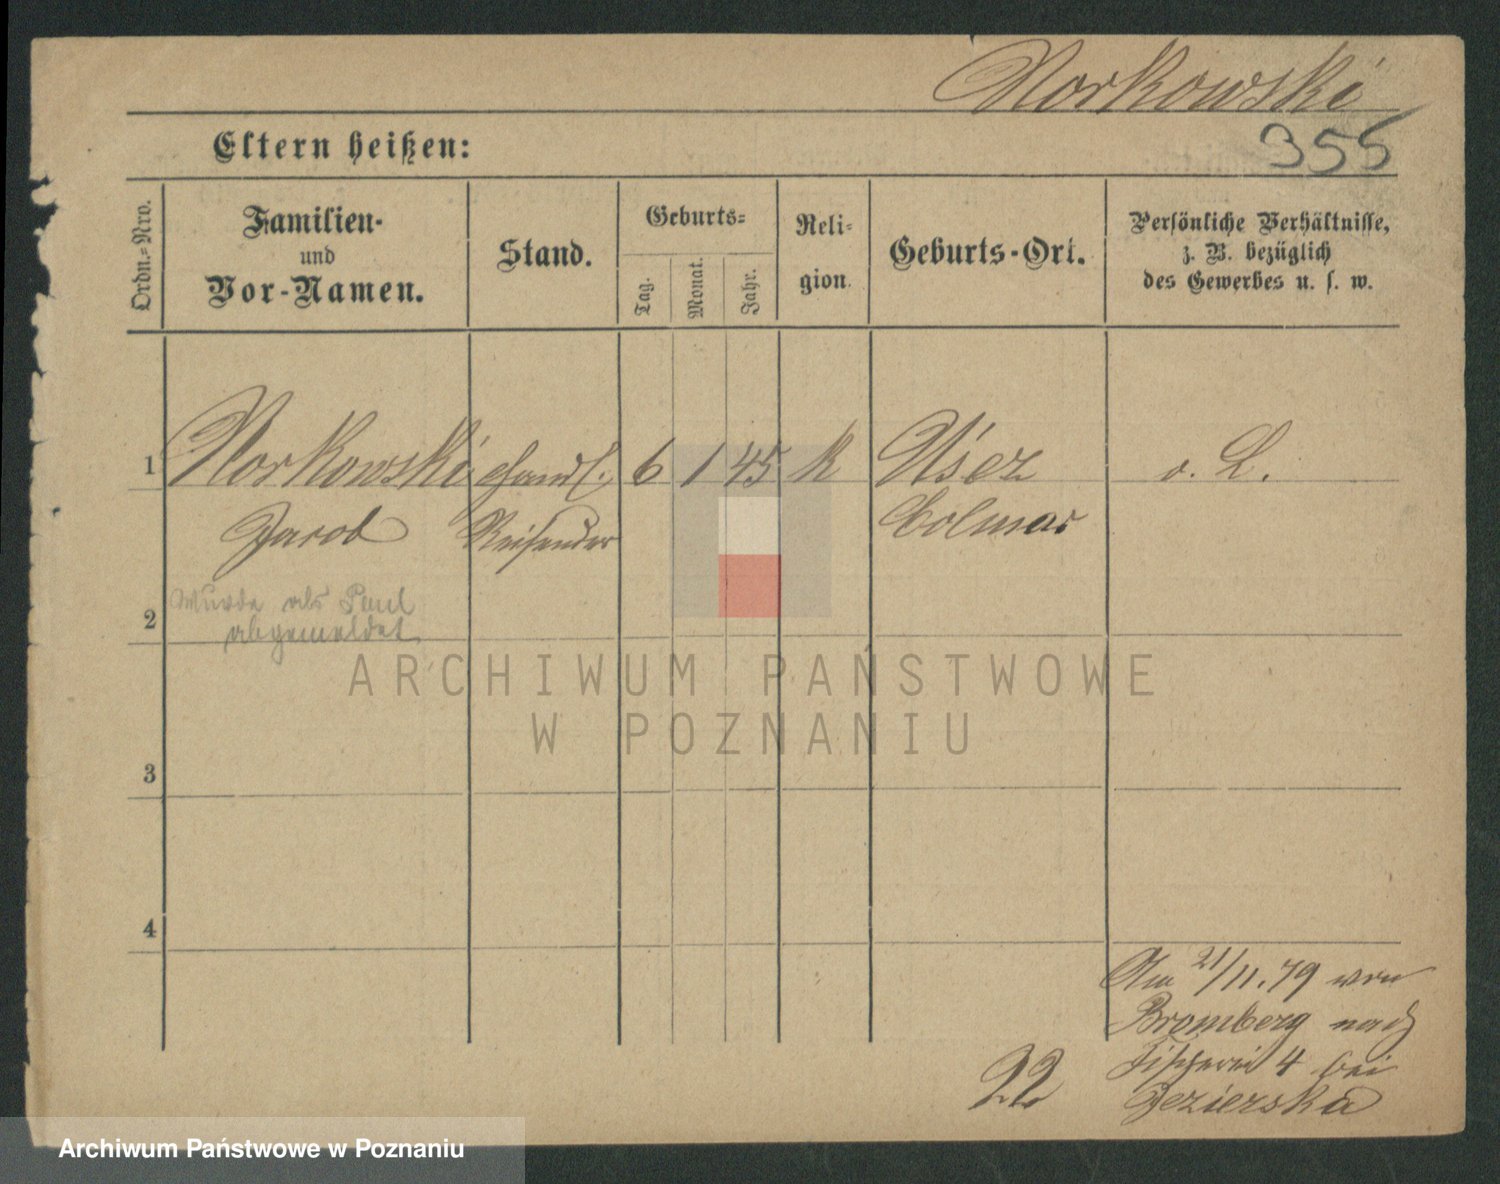 Norkowski
Eltern heißen:
355
Ordn.-Nro.
Familien-
und
Vor-Namen.
Stand.
Geburts-
Tag.
Monat.
Jahr.
Reli-
gion.
Geburts-Ort.
Persönliche Verhältnisse,
z. B. bezüglich
des Gewerbes u. s. w.
1 Norkowski Handl. 6 1 45 K Usez o. L.
Jacob Reisender Colmar
wurde als Paul
2 abgemeldet
ARCHIWUM PAŃSTWOWE
W POZNANIU
3
4
Am 21/11.79 von
Bromberg nach
Fischerei 4 bei
22 Jezierska
Archiwum Państwowe w Poznaniu